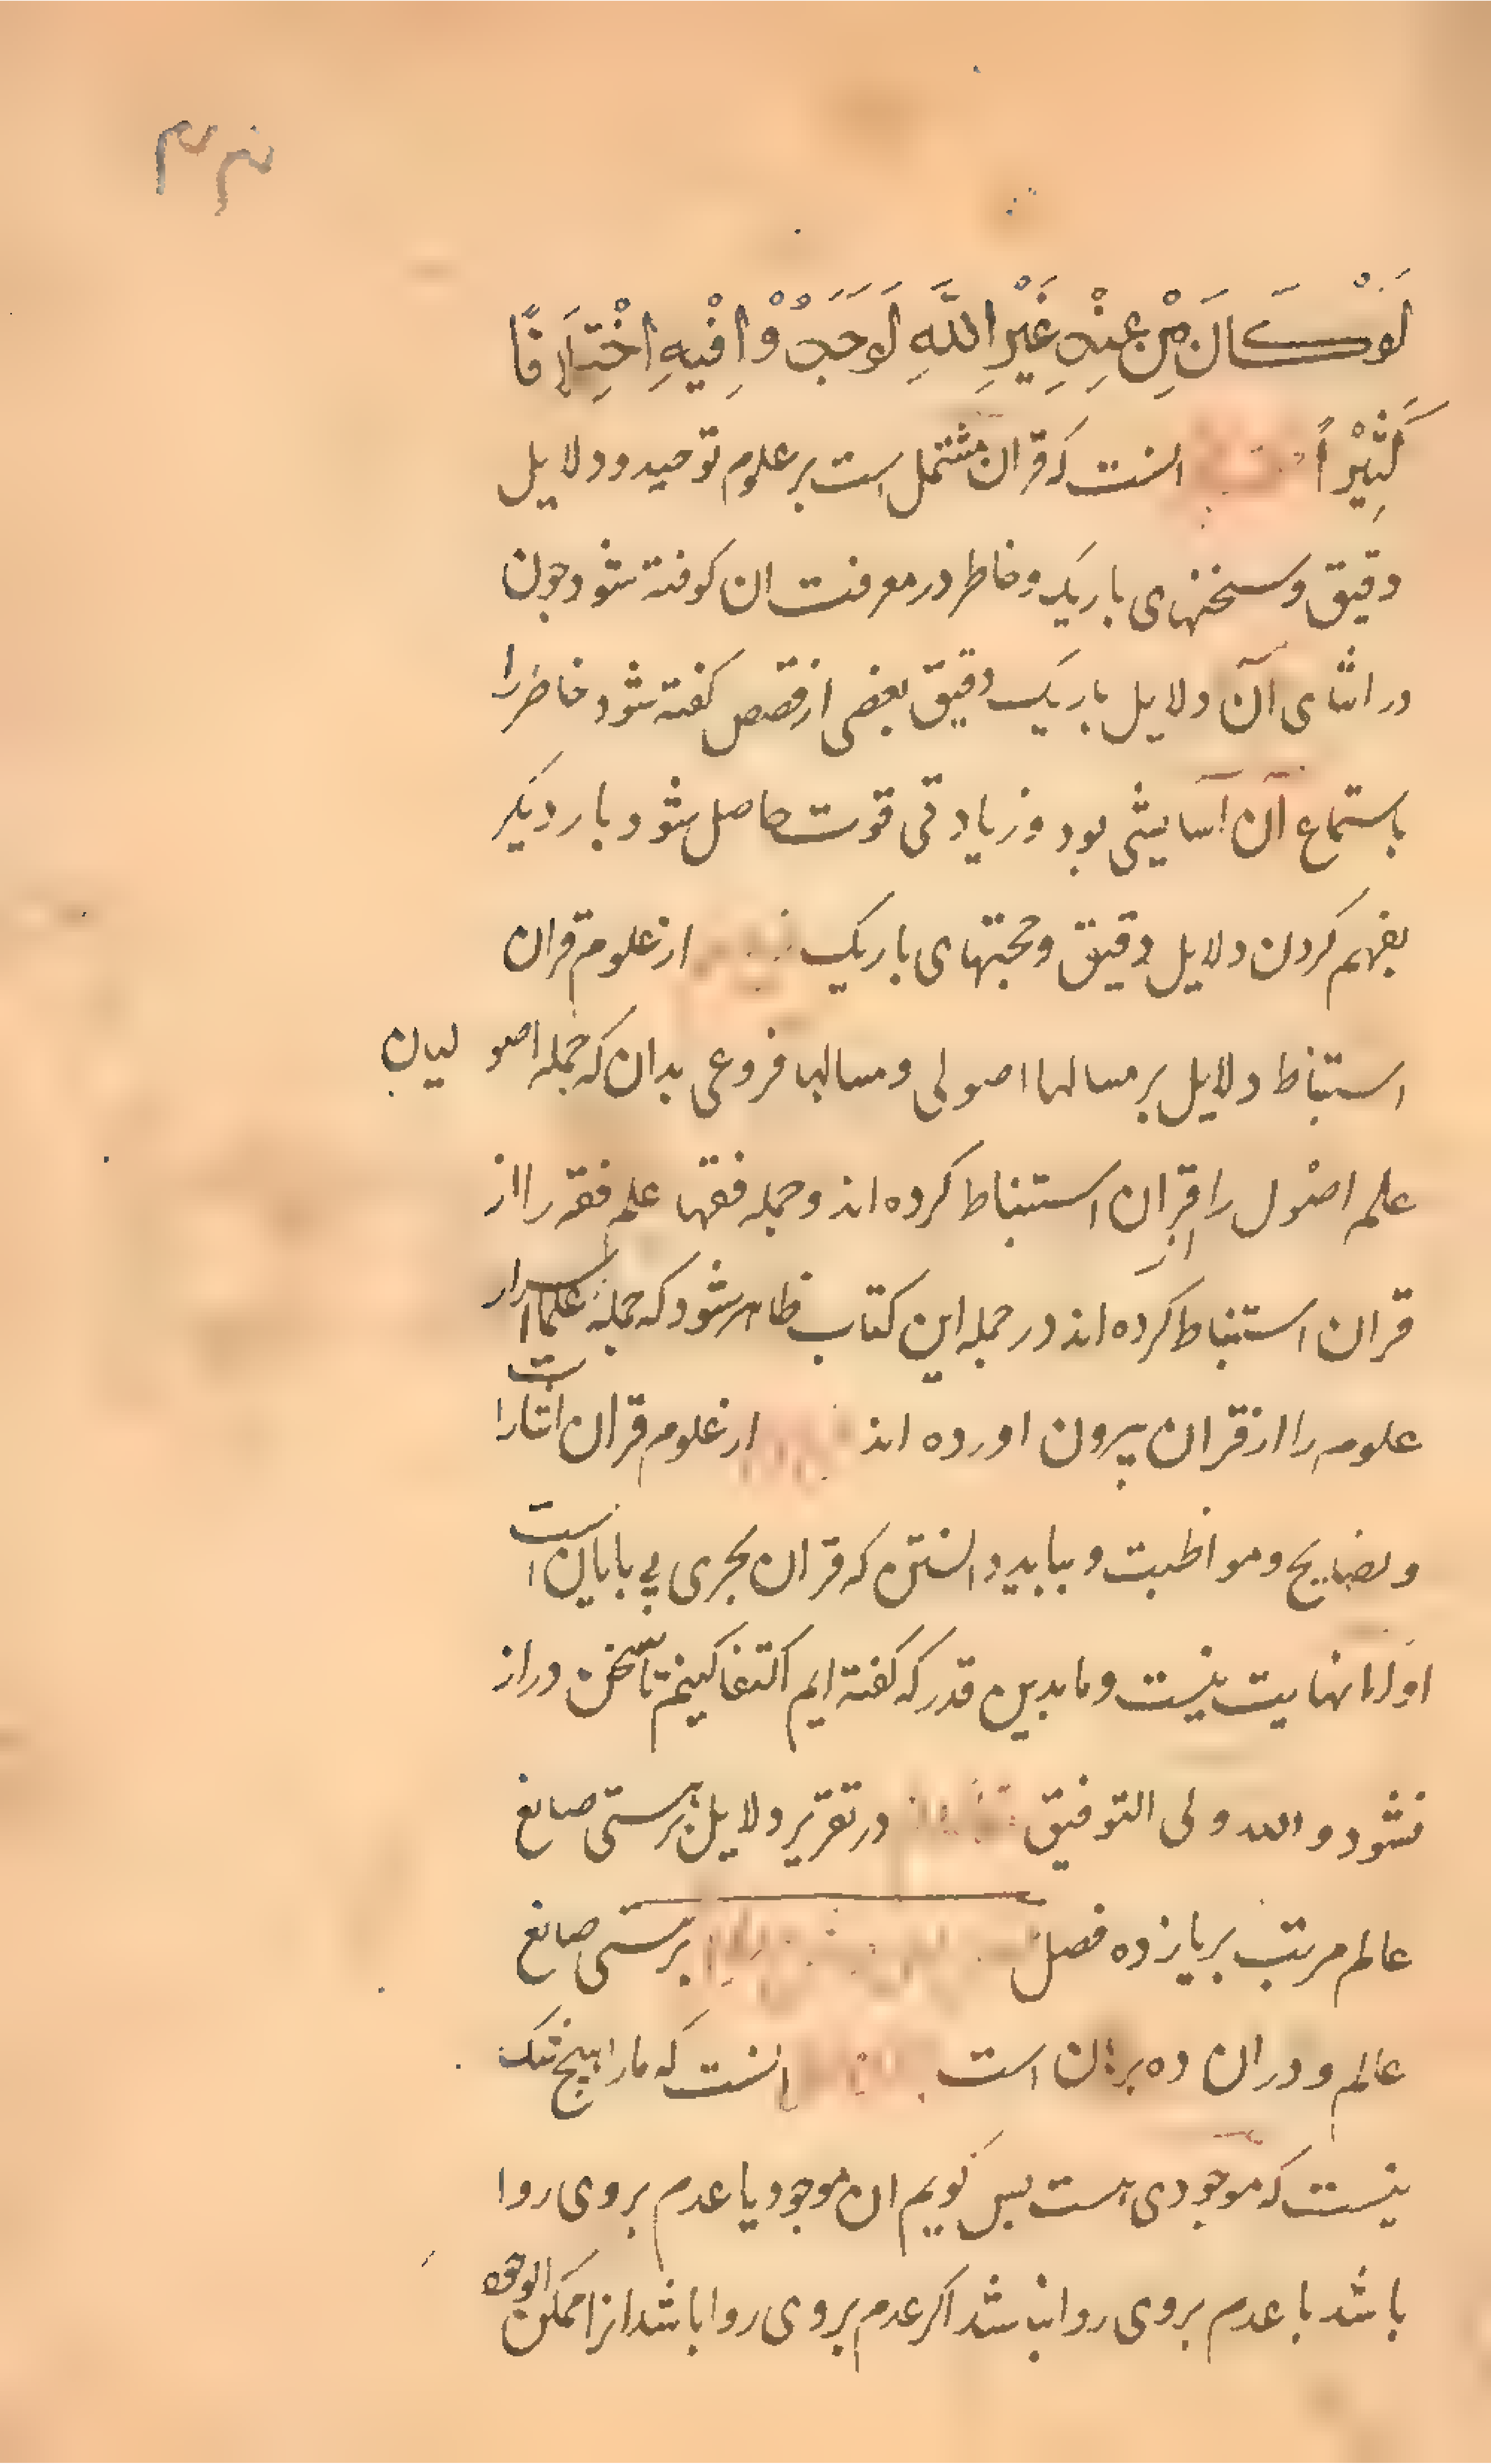 لَوْ كَانَ مِنْ عِنْدِ غَيْرِ اللَّهِ لَوَجَدُوْا فِيْهِ اخْتِلَافًا
كَثِيْرًا انست كه قران مشتمل است بر علوم توحيد و دلايل
دقيق و سخنهاى باريك و خاطر در معرفت ان كوفته شود جون
در اثناى آن دلايل باريك دقيق بعضى از قصص كفته شود خاطر را
باستماع آن آسايشى بود و زيادتى قوت حاصل شود بار ديكر
بفهم كردن دلايل دقيق و حجتهاى باريك از علوم قران
استنباط دلايل بر مسالها اصولى و مسالها فروعى بدان كه جمله اصوليان
علم اصول را از قران استنباط كرده اند و جمله فقها علم فقه را از
قران استنباط كرده اند در جمله اين كتاب ظاهر شود كه جمله علما اسرار
علوم را از قران بيرون اورده اند از علوم قران اشارات
و نصايح و مواظبت و ببايد دانستن كه قران بحرى بى پايان است
او را نهايت نيست و ما بدين قدر كه كفته ايم اكتفا كنيم تا سخن دراز
نشود و الله ولى التوفيق در تقرير دلايل بر هستى صانع
عالم مرتب بر يازده فصل بر هستى صانع
عالم و دران ده برهان است انست كه ما را هيچ شك
نيست كه موجودى هست پس كويم ان موجود يا عدم بروى روا
باشد يا عدم بروى روا نباشد اكر عدم بروى روا باشد انرا ممكن الوجود